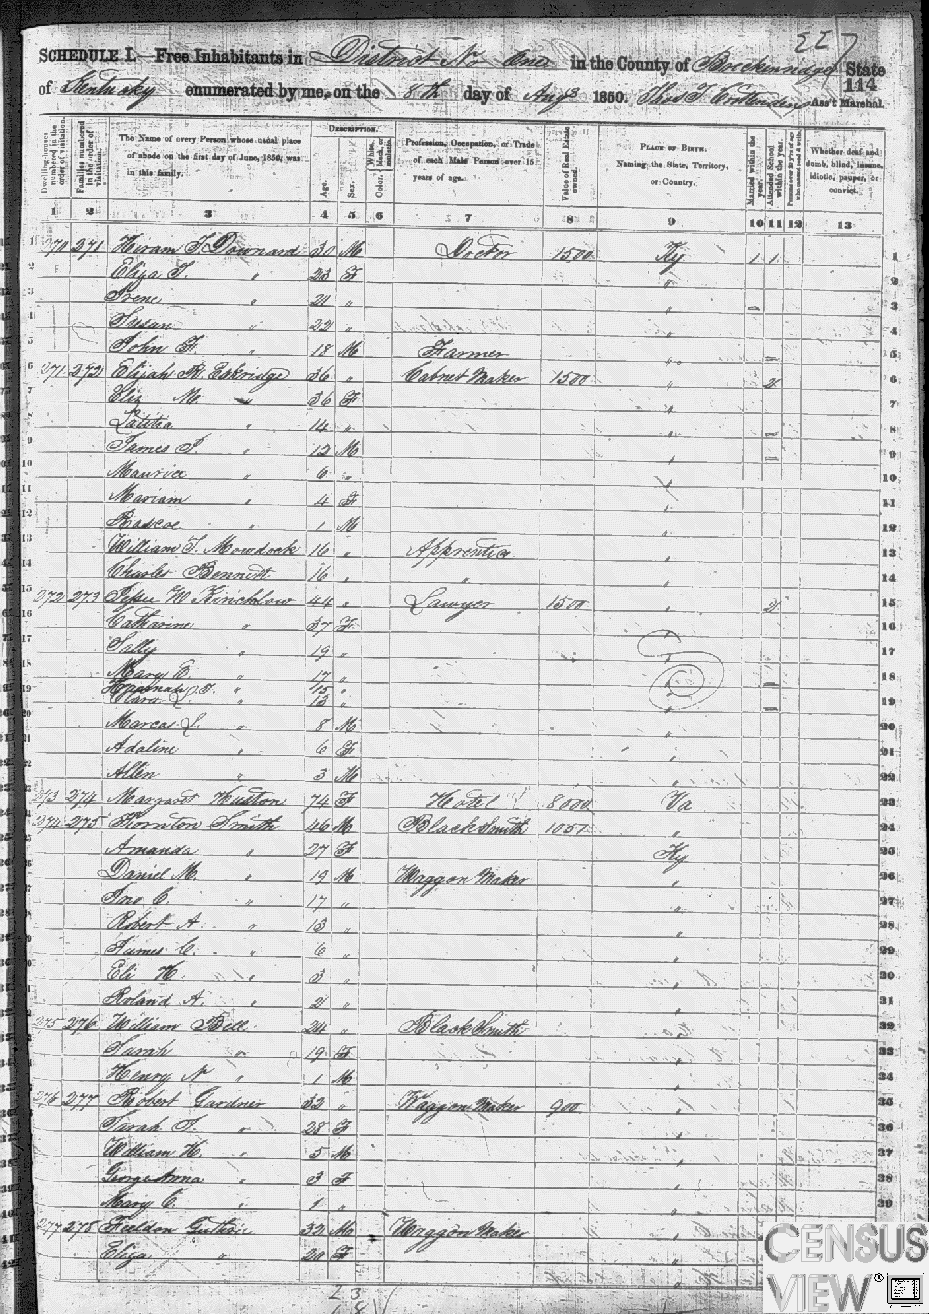 SCHEDULE I.—Free Inhabitants in District No One in the County of Breckenridge State
of Kentucky enumerated by me, on the 8th day of Augs 1850. Thos T. Crittenden Ass't Marshal.
114
DESCRIPTION.
Dwelling-houses numbered in the order of visitation.
Families numbered in the order of visitation.
The Name of every Person whose usual place of abode on the first day of June, 1850, was in this family.
Age.
Sex.
Color.
Profession, Occupation, or Trade of each Male Person over 15 years of age.
Value of Real Estate owned.
PLACE OF BIRTH. Naming the State, Territory, or Country.
Married within the year.
Attended School within the year.
Whether deaf and dumb, blind, insane, idiotic, pauper, or convict.
1 2 3 4 5 6 7 8 9 10 11 12 13
270 271 Hiram T Downard 30 M Doctor 1500 Ky 1 1 1
Eliza T. " 23 F " 2
Irene " 21 " " 3
Susan " 22 " "
John F. " 18 M Farmer " 5
271 272 Elijah R. Eskridge 36 " Cabnet Maker 1500 " 6
Eliz M. " 36 F " 7
Latitia " 14 " " 8
James J. " 12 M " 9
Maurice " 6 " 10
Mariam " 4 F " 11
Roscoe " 1 M " 12
William S. Mowdock 16 " Apprentice " 13
Charles Bennett 16 " " " 14
272 273 Jesse W Kinchlow 44 " Lawyer 1500 " 15
Catharine " 37 F " 16
Sally " 19 " 17
Mary E. " 17 " 18
Hannah " 15 "
Clara L. " 12 " " 19
Marcas L. " 8 M " 20
Adaline " 6 F " 21
Allen " 3 M " 22
273 274 Margaret Huston 74 F Hotel 8000 Va 23
274 275 Thornton Smith 46 M BlackSmith 1051 " 24
Amanda " 27 F Ky 25
Daniel M. " 19 M Waggon Maker " 26
Jno C. " 17 " " 27
Robert A. " 13 " " 28
James C. " 6 " " 29
Eli H. " 3 " " 30
Roland A. " 2 " " 31
275 276 William Bell 24 " BlackSmith " 32
Sarah " 19 F " 33
Henry N " 1 M " 34
276 277 Robert Gardner 32 " Waggon Maker 900 " 35
Sarah J. " 28 F " 36
William H. " 5 M " 37
George Anna " 3 F " 38
Mary C. " 1 " " 39
277 278 Feeldon Guthrie 32 M Waggon Maker "
Eliza " 20 F "
23
18
CENSUS
VIEW®